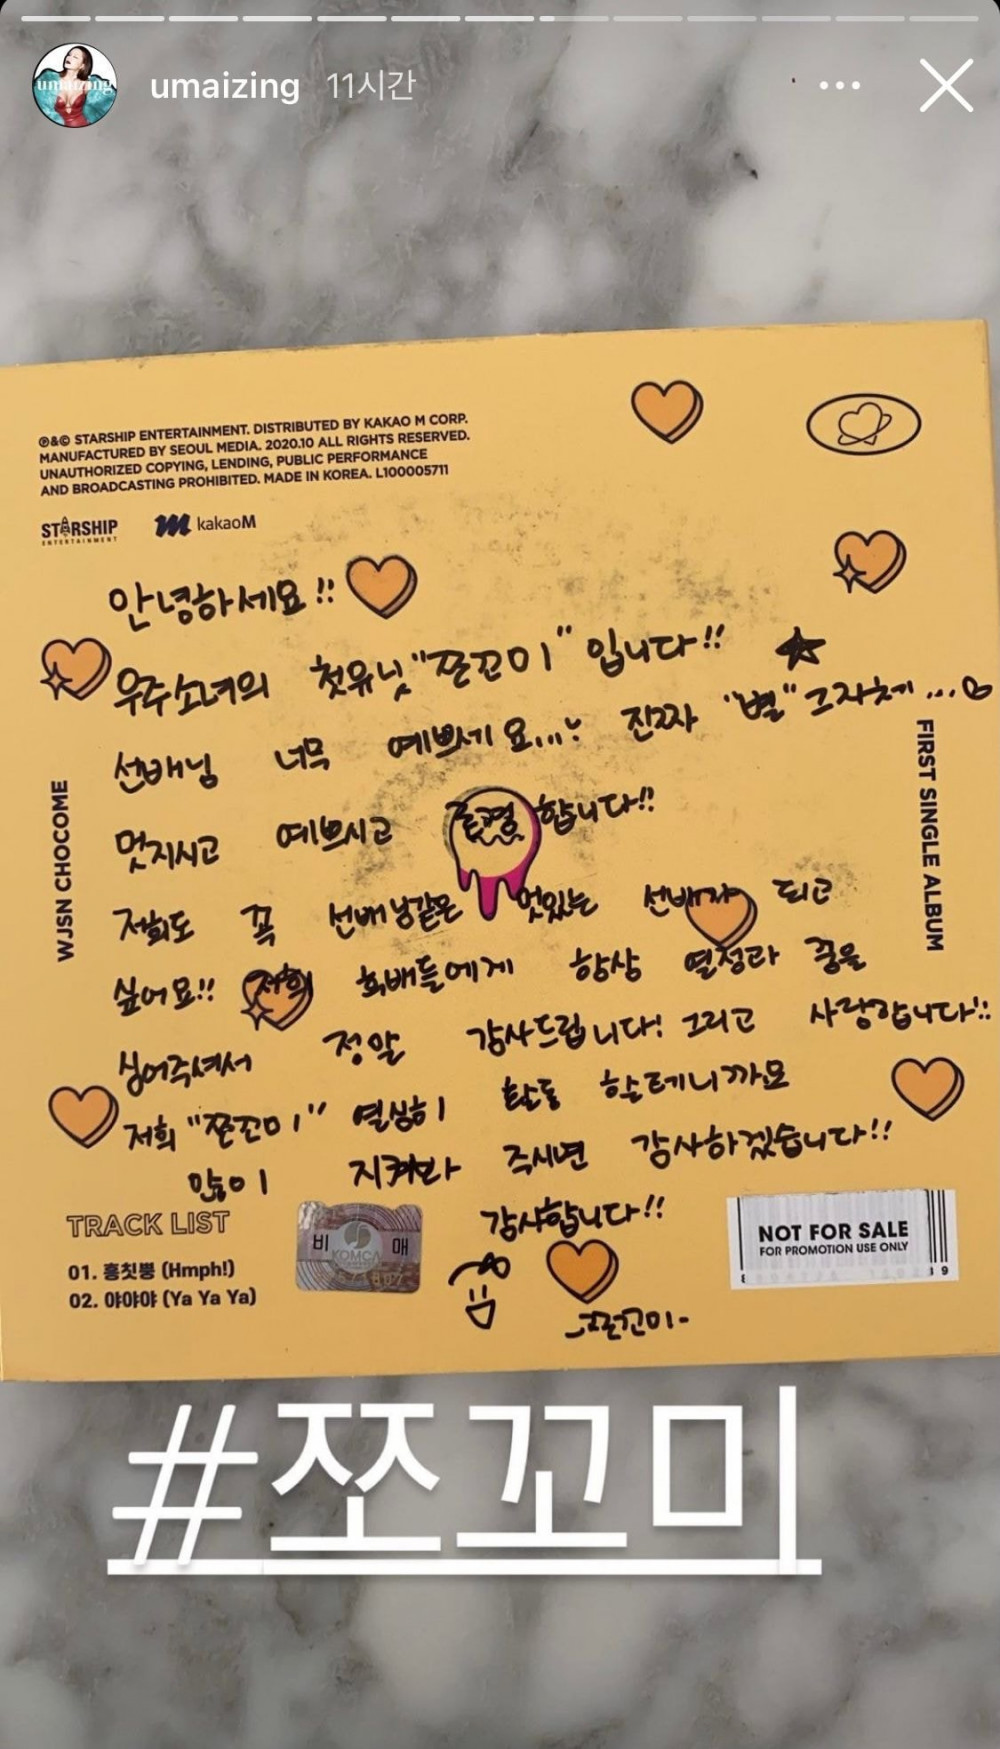 umaizing 11시간
℗&© STARSHIP ENTERTAINMENT. DISTRIBUTED BY KAKAO M CORP.
MANUFACTURED BY SEOUL MEDIA. 2020.10 ALL RIGHTS RESERVED.
UNAUTHORIZED COPYING, LENDING, PUBLIC PERFORMANCE
AND BROADCASTING PROHIBITED. MADE IN KOREA. L100005711
STARSHIP
ENTERTAINMENT
kakaoM
안녕하세요!!
우주소녀의 첫유닛 "쪼꼬미" 입니다!!
선배님 너무 예쁘세요... 진짜 "별" 그자체...
멋지시고 예쁘시고 존경합니다!!
저희도 꼭 선배님같은 멋있는 선배가 되고
싶어요!! 저희 후배들에게 항상 열정과 꿈을
심어주셔서 정말 감사드립니다! 그리고 사랑합니다!!
저희 "쪼꼬미" 열심히 활동 할테니까요
많이 지켜봐 주시면 감사하겠습니다!!
감사합니다!!
-쪼꼬미-
WJSN CHOCOME
FIRST SINGLE ALBUM
TRACK LIST
01. 흥칫뿡 (Hmph!)
02. 야야야 (Ya Ya Ya)
비 매
KOMCA
NOT FOR SALE
FOR PROMOTION USE ONLY
#쪼꼬미